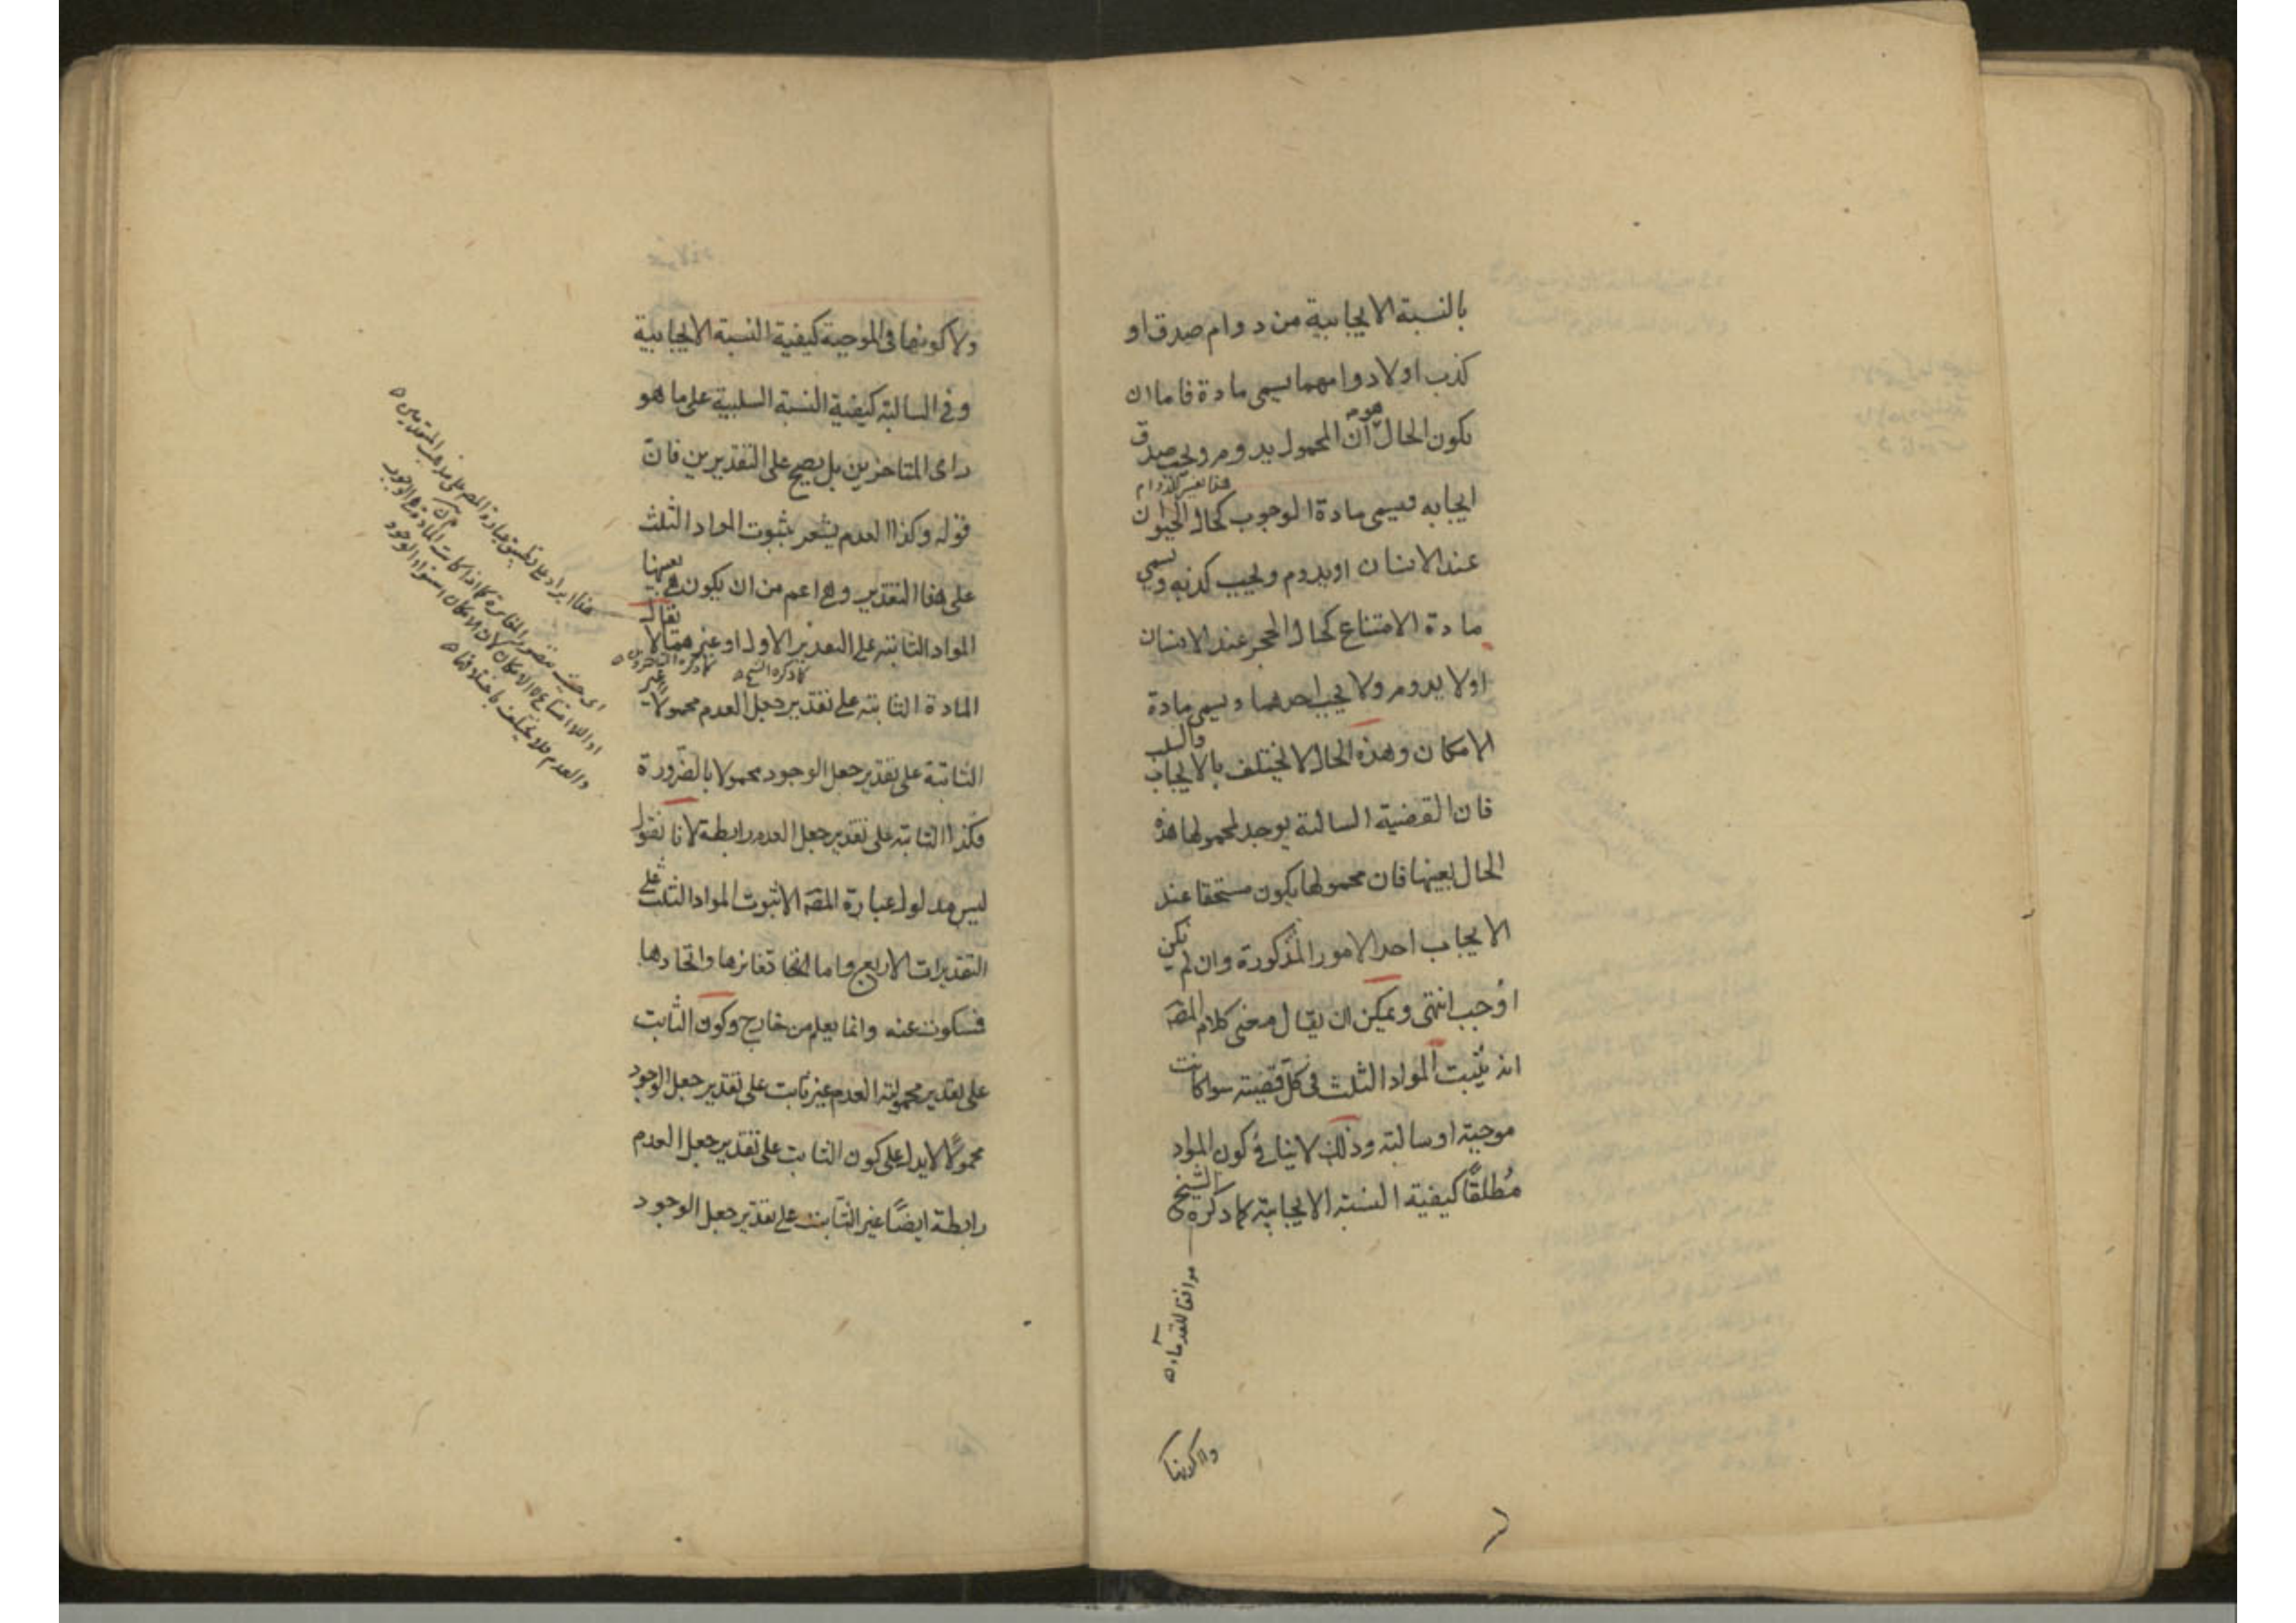 بالنسبة الايجابية من دوام صدق او
كذب اولا دوامهما يسمى مادة فاما ان
يكون الحال هو ان المحمول يدوم ويجب صدق
هذا تفسير للدوام
ايجابه ويسمى مادة الوجوب كحال الحيوان
عند الانسان او يدوم ويجب كذبه ويسمى
مادة الامتناع كحال الحجر عند الانسان
اولا يدوم ولا يجب احدهما ويسمى مادة
الامكان وهذه الحال لا تختلف بالايجاب والسلب
فان القضية السالبة يوجد لمحمولها هذه
الحال بعينها فان محمولها يكون مستحقا عند
الايجاب احد الامور المذكورة وان لم يكن
اوجب انتهى ويمكن ان يقال معنى كلام المصه
انه يثبت المواد الثلث في كل قضية سوا كانت
موجبة او سالبة وذلك لا ينافي كون المواد
مُطلقًا كيفية النسبة الايجابية كما ذكره الشيخ
موافقا للقدمآء
ولا كونها
ولا كونها في الموجبة كيفية النسبة الايجابية
وفي السالبة كيفية النسبة السلبية على ما هو
راى المتاخرين بل يصح على التقديرين فان
قوله وكذا العدم يشعر بثبوت المواد الثلث
على هذا التقدير وهي اعم من ان يكون هي بعينها
المواد الثابتة على التقدير الاول او غيرهما لا يقال
كما ذكره الشيخ
كما ذكره المتاخرون
المادة الثابتة على تقدير جعل العدم محمولا غير
الثابتة على تقدير جعل الوجود محمولا بالضرورة
فكذا الثابتة على تقدير جعل العدم رابطة لانا نقول
ليس مدلول عبارة المصه الا ثبوت المواد الثلث على
التقديرات الاربع واما انها تغايرها واتحادها
فسكوت عنه وانما يعلم من خارج وكون الثابت
على تقدير محمولية العدم غير ثابت على تقدير جعل الوجود
محمولًا لا يدل على كون الثابت على تقدير جعل العدم
رابطة ايضًا غير الثابت على تقدير جعل الوجود
هذا ايراد على تطبيق عبارة المصه على مذهب المتقدمين
اى حيث يتصور المغايرة كما اذا كانت المادة هي الوجوب
او الامتناع لا الامكان لان الامكان استواء الوجود
والعدم فلا يختلف باختلافها